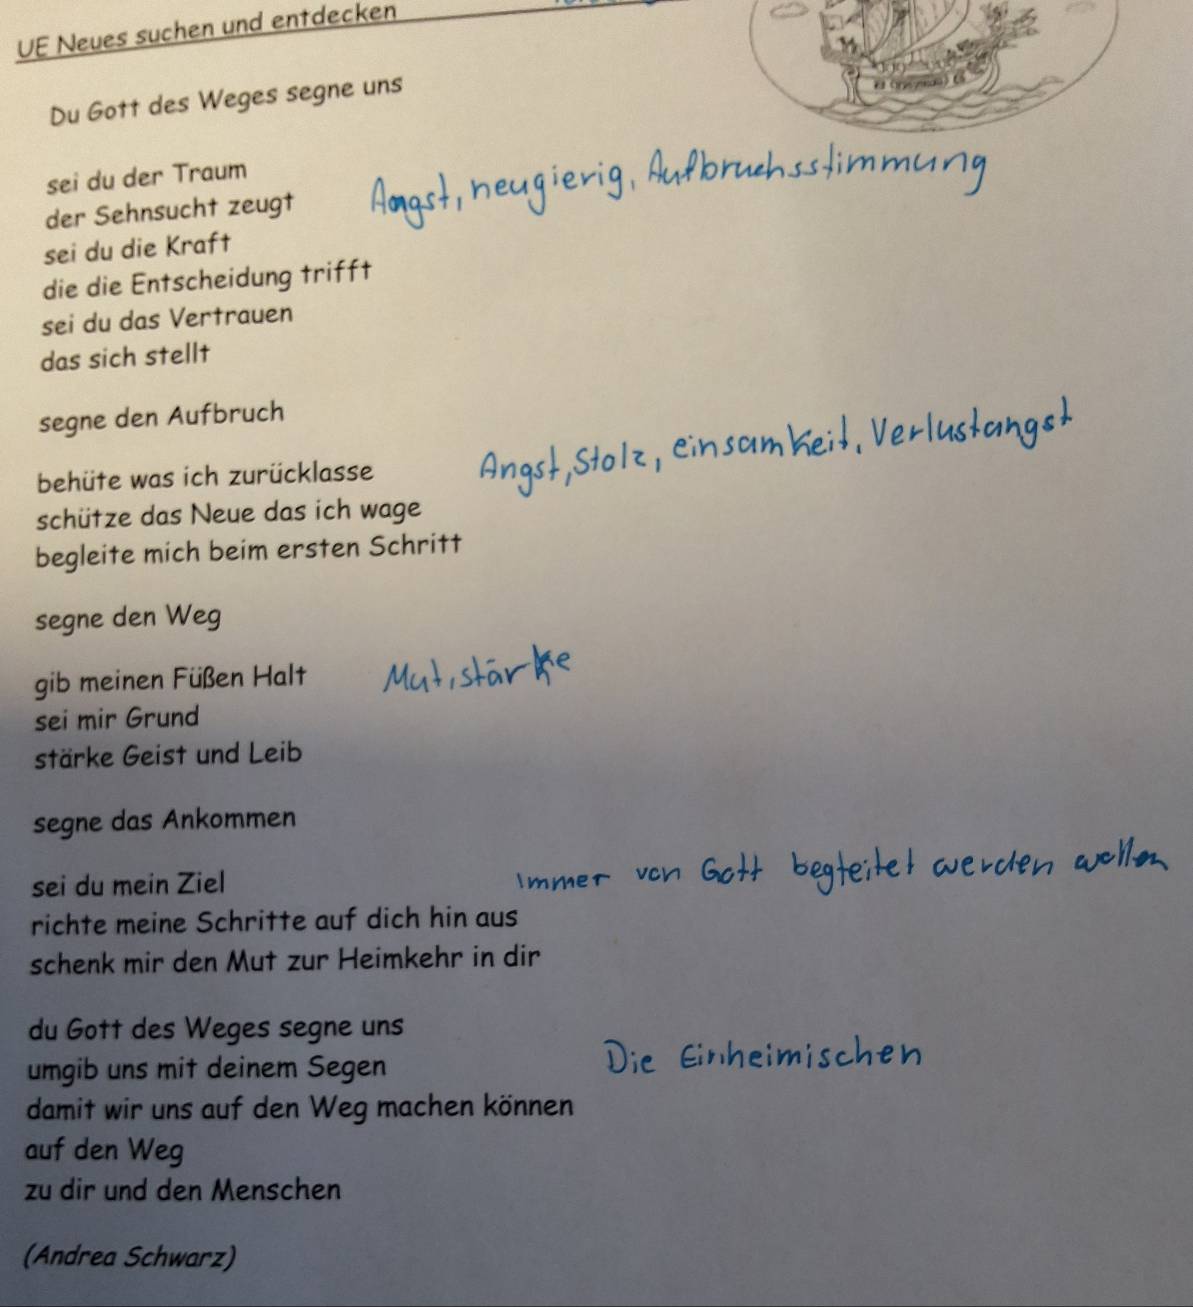 UE Neues suchen und entdecken
Du Gott des Weges segne uns
sei du der Traum
der Sehnsucht zeugt
Angst, neugierig, Aufbruchsstimmung
sei du die Kraft
die die Entscheidung trifft
sei du das Vertrauen
das sich stellt
segne den Aufbruch
behüte was ich zurücklasse
Angst, Stolz, einsamkeit, Verlustangst
schütze das Neue das ich wage
begleite mich beim ersten Schritt
segne den Weg
gib meinen Füßen Halt
Mut, stärke
sei mir Grund
stärke Geist und Leib
segne das Ankommen
sei du mein Ziel
immer von Gott begleitet werden wollen
richte meine Schritte auf dich hin aus
schenk mir den Mut zur Heimkehr in dir
du Gott des Weges segne uns
umgib uns mit deinem Segen
Die Einheimischen
damit wir uns auf den Weg machen können
auf den Weg
zu dir und den Menschen
(Andrea Schwarz)